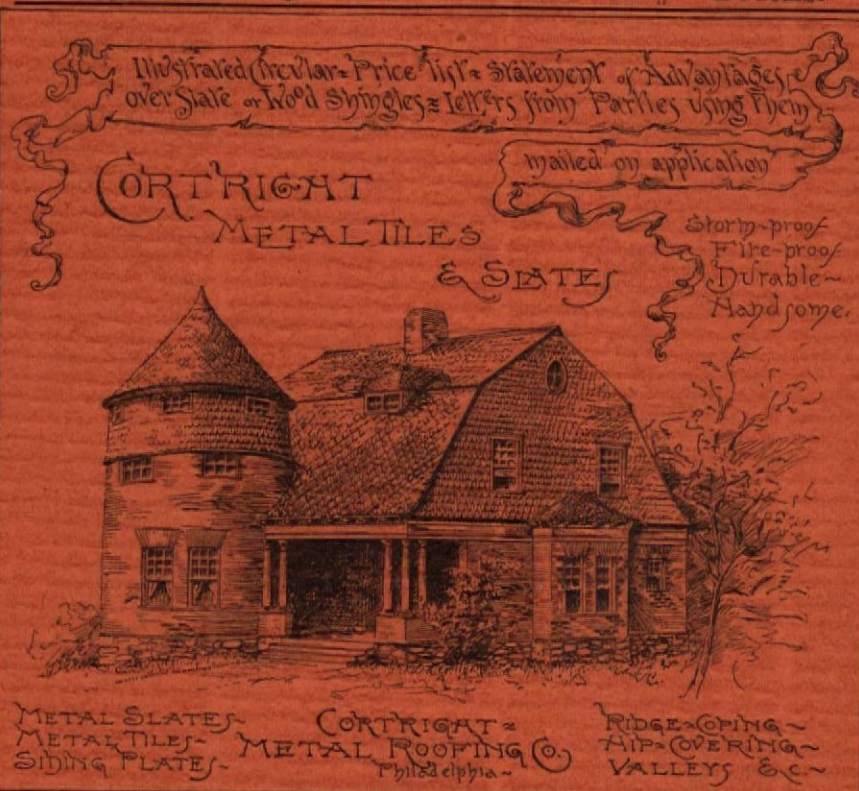 Illustrated Circular = Price list = Statement of Advantages =
over Slate or Wood Shingles = Letters from Parties using Them
mailed on application
CORTRIGHT
METAL TILES
& SLATES
Storm-proof
Fire-proof
Durable~
Handsome.
METAL SLATES~
METAL TILES~
SIDING PLATES~
CORTRIGHT =
METAL ROOFING CO.
Philadelphia ~
RIDGE=COPING~
HIP=COVERING~
VALLEYS &c.~